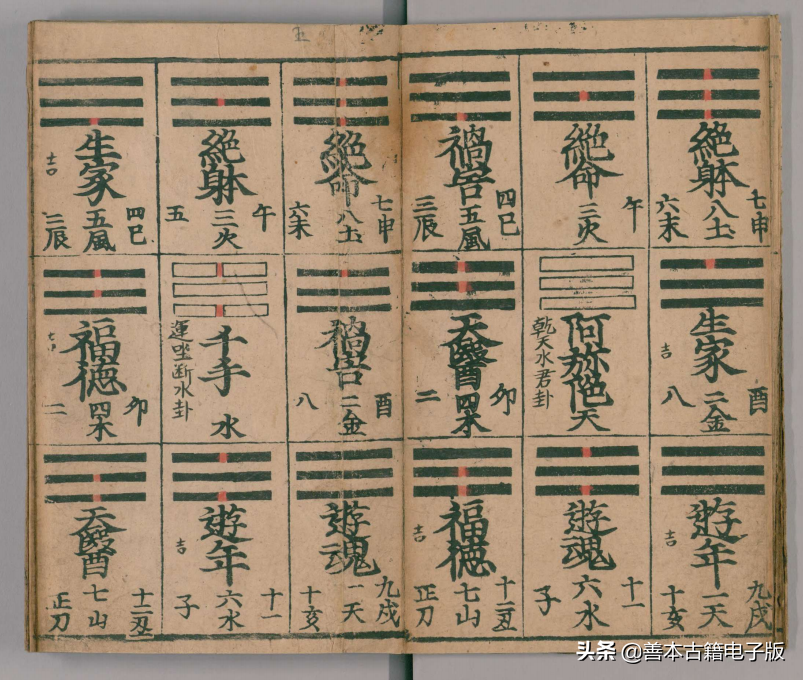 五
絶躰八土
七申
六未
絶命三火
午
禍害五風
四巳
三辰
生家二金
酉
八
吉
阿弥陀天
乾天水君卦
天醫四木
卯
二
遊年一天
九戌
十亥
吉
遊魂六水
十一
子
福德七山
十二丑
正刀
吉
絶命八土
七申
六未
絶躰三火
午
五
生家五風
四巳
三辰
吉
禍害二金
酉
八
千手水
運坐断水卦
福德四木
卯
二
遊魂一天
九戌
十亥
遊年六水
十一
子
吉
天醫七山
十二丑
正刀
头条 @善本古籍电子版